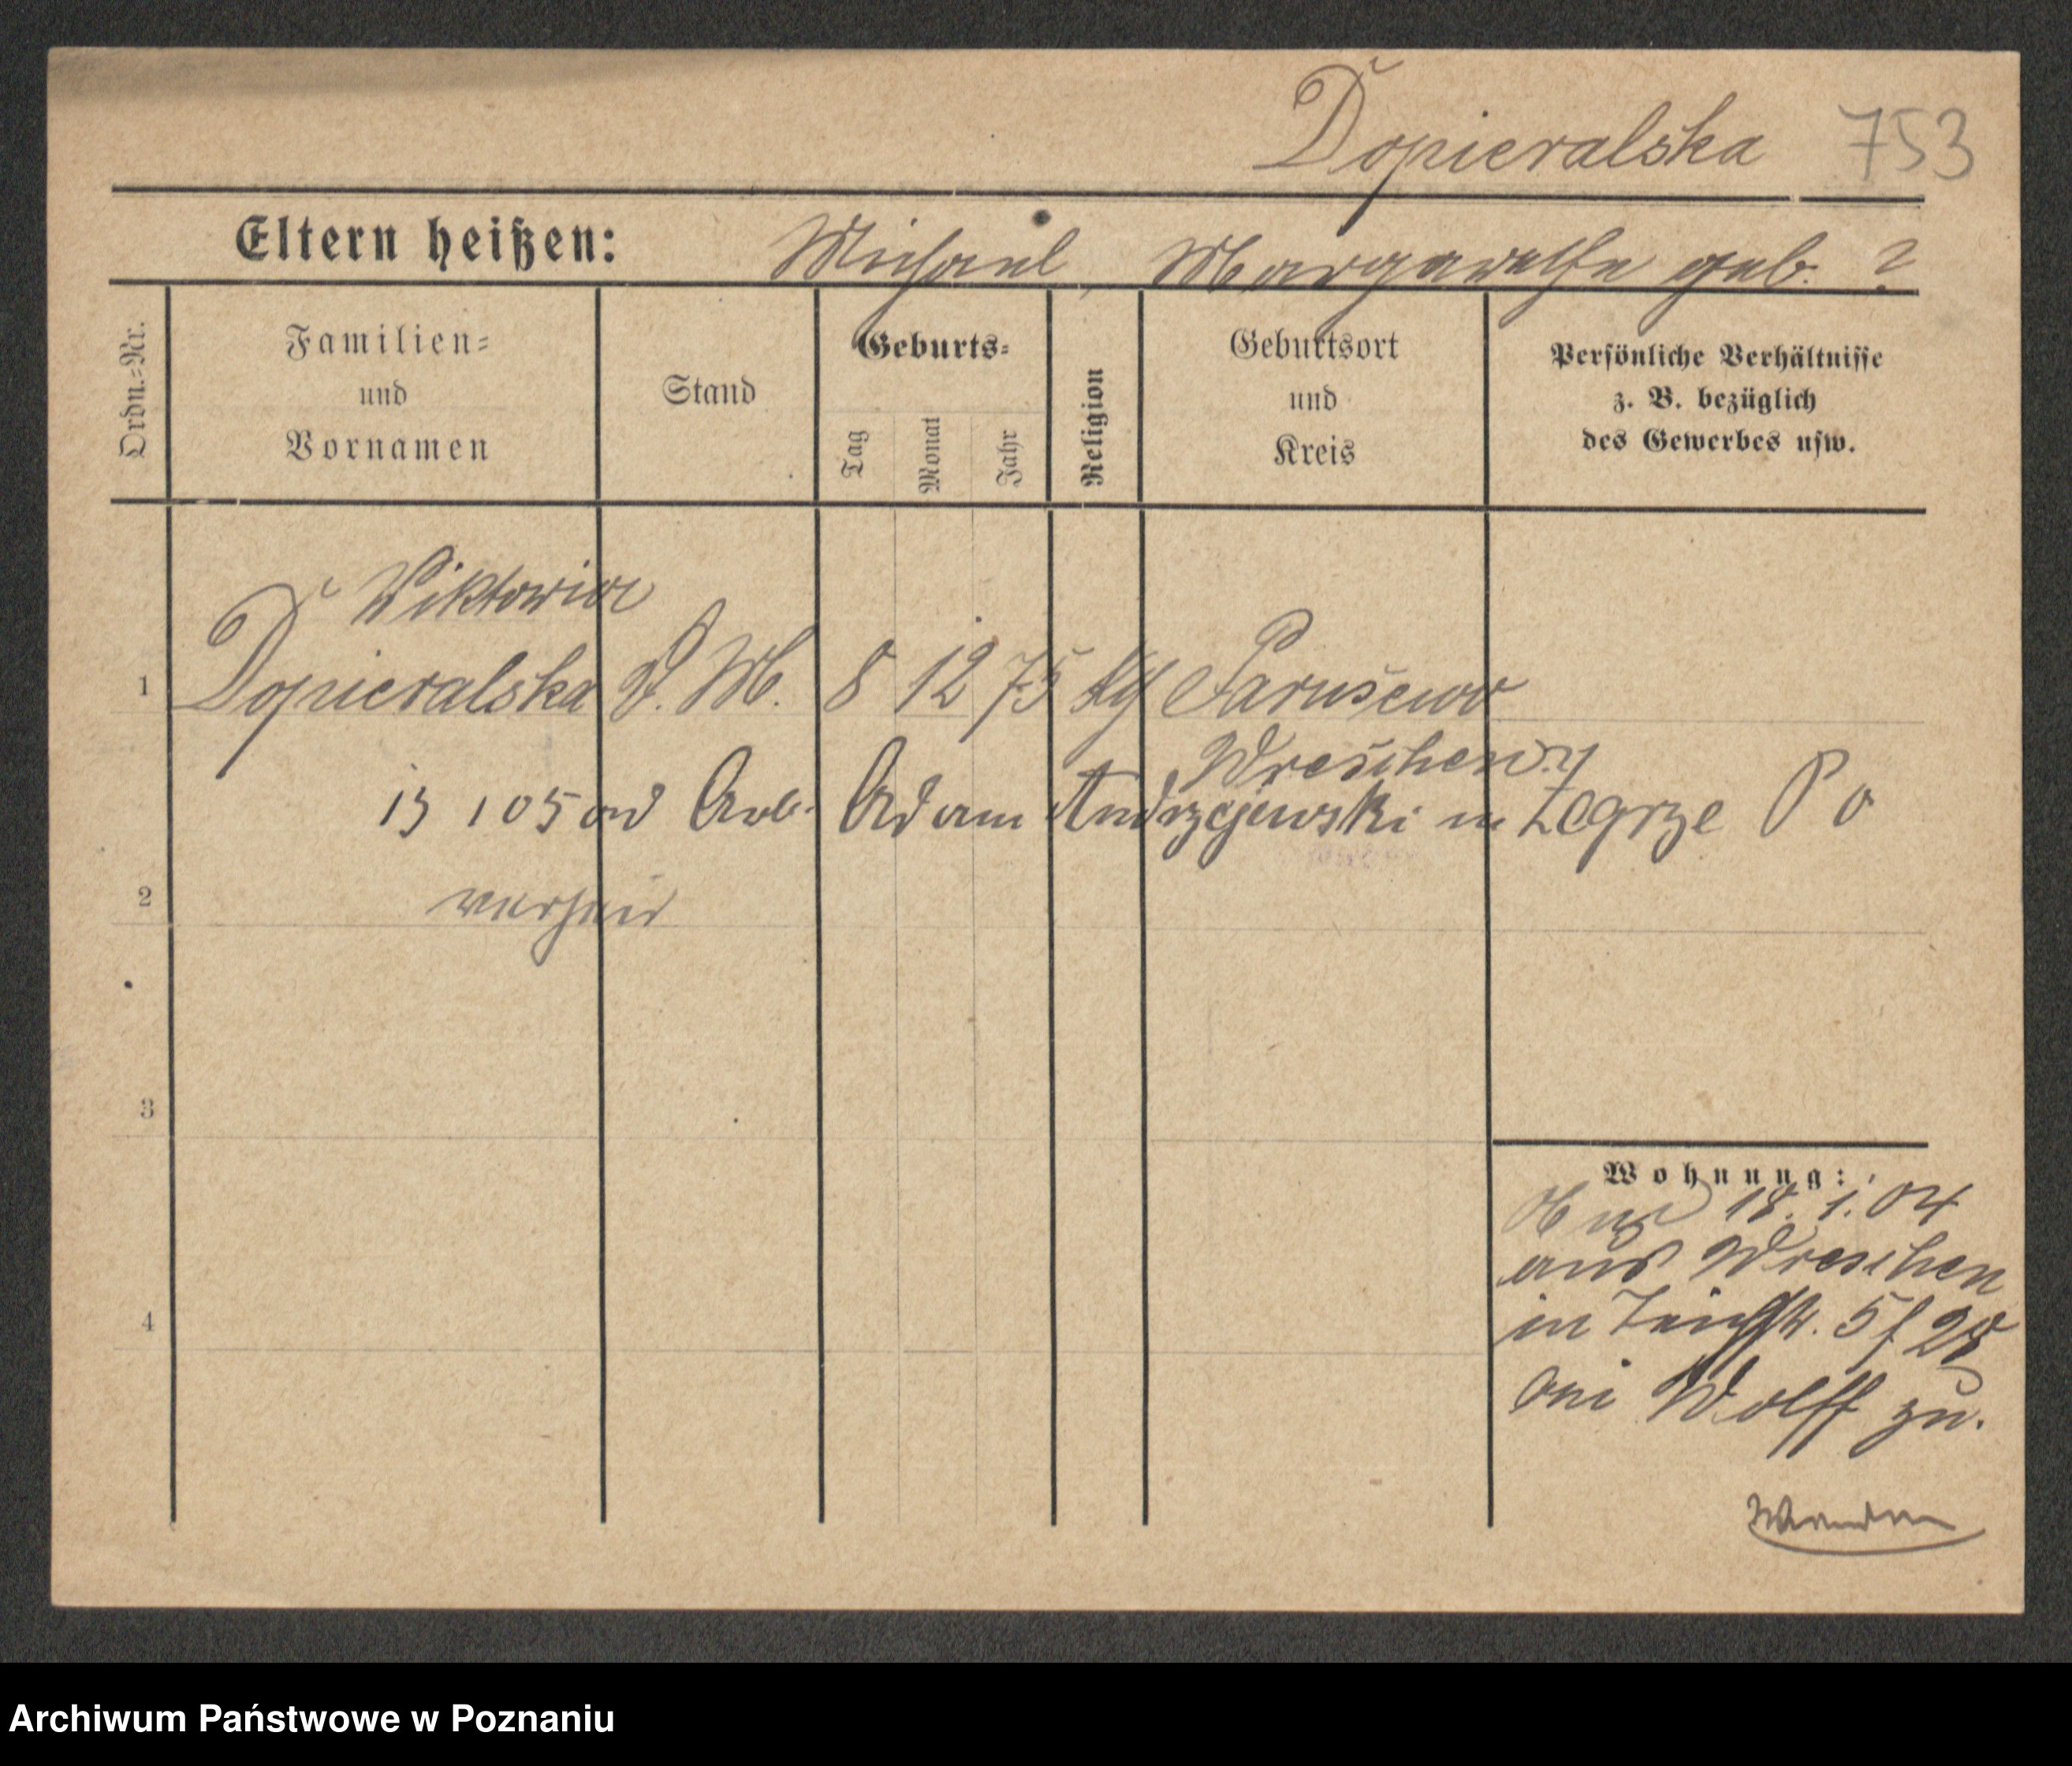 Dopieralska 753
Eltern heißen: Michael Margarethe geb. ?
Ordn.=Nr.
Familien=
und
Vornamen
Stand
Geburts=
Tag
Monat
Jahr
Religion
Geburtsort
und
Kreis
Persönliche Verhältnisse
z. B. bezüglich
des Gewerbes usw.
Viktoria
1 Dopieralska D. M. 8 12 75 kg Parusewo
Wreschen
13 1 05 Arb. Adam Andrzejewski in Zegrze Po
2 verheir
3
4
Wohnung:
18. 1. 04
aus Wreschen
in Teichstr. 5
bei Wolff zu.
Archiwum Państwowe w Poznaniu